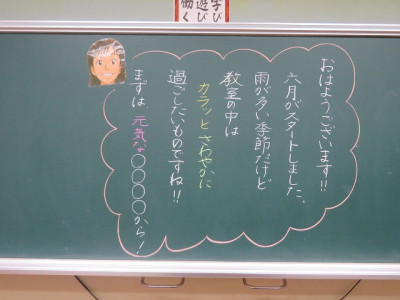 学び
遊び
働く
おはようございます!!
六月がスタートしました。
雨が多い季節だけど
教室の中は
カラッとさわやかに
過ごしたいものですね!!
まずは元気な〇〇〇〇から!